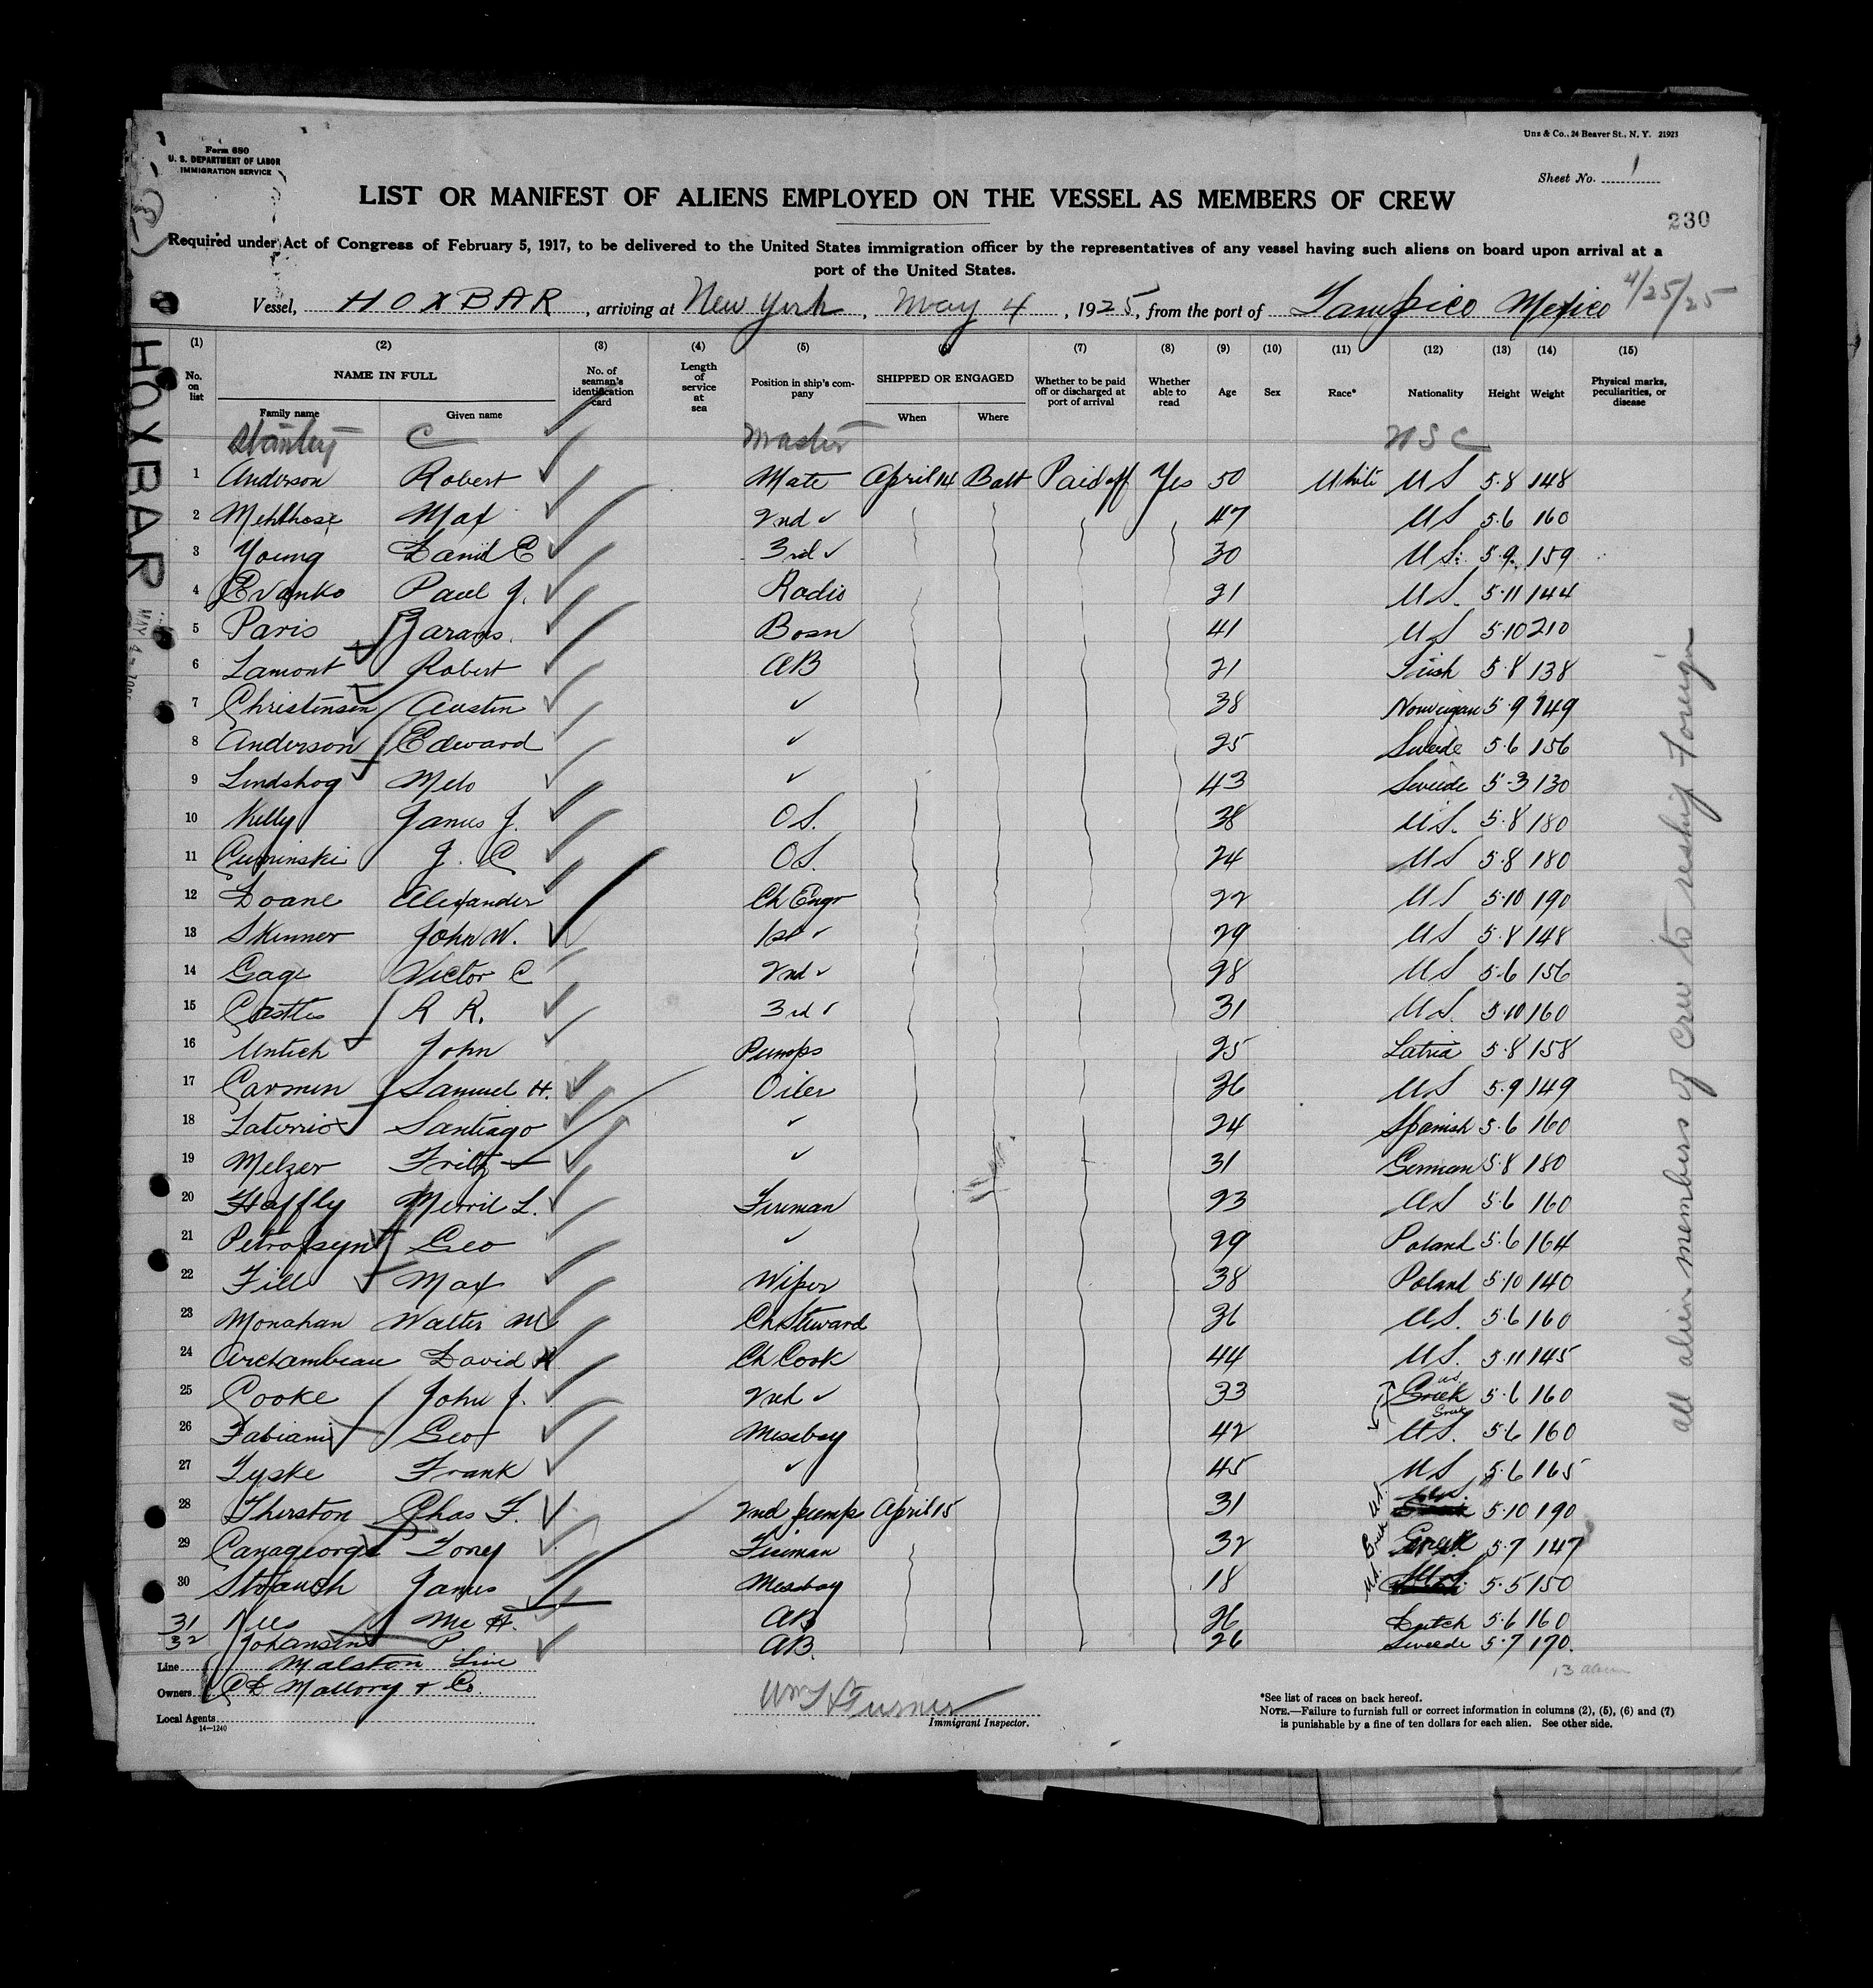 Form 680
U. S. DEPARTMENT OF LABOR
IMMIGRATION SERVICE
Uns & Co., 24 Beaver St., N. Y. 21923
Sheet No. 1
LIST OR MANIFEST OF ALIENS EMPLOYED ON THE VESSEL AS MEMBERS OF CREW
230
Required under Act of Congress of February 5, 1917, to be delivered to the United States immigration officer by the representatives of any vessel having such aliens on board upon arrival at a
port of the United States.
Vessel, HOXBAR, arriving at New York, May 4, 1925, from the port of Tampico Mexico 4/25/25
HOXBAR
(1) (2) (3) (4) (5) (6) (7) (8) (9) (10) (11) (12) (13) (14) (15)
No. on list NAME IN FULL Family name Given name No. of seaman's identification card Length of service at sea Position in ship's company SHIPPED OR ENGAGED When Where Whether to be paid off or discharged at port of arrival Whether able to read Age Sex Race* Nationality Height Weight Physical marks, peculiarities, or disease
Stanley C Master USC
1 Anderson Robert Mate April 14 Balt Paid off Yes 50 White US 5.8 148
2 Mehlhose Max 2nd ✓ 47 US 5.6 160
3 Young David E 3rd ✓ 30 US. 5.9. 159
4 Evanko Paul J. Radio 21 US. 5.11 144
5 Paris Bosn 41 US 5.10 210
6 Lamont Robert AB 21 Irish 5.8 138
7 Christensen Austin ✓ 38 Norweigan 5.9 149
8 Anderson Edward ✓ 25 Sweede 5.6 156
9 Lindshog ✓ 43 Sweede 5-3 130
10 Kelly James J. OS. 38 US. 5.8 180
11 Cuminski J. C OS. 24 US 5.8 180
12 Doane Alexander Ch Engr 22 US 5.10 190
13 Skinner John W. 1st ✓ 29 US 5.8 148
14 Gage Victor C 2nd ✓ 28 US 5.6 156
15 Castles R R. 3rd ✓ 31 US. 5.10 160
16 Untich John Pumps 25 Latvia 5.8 158
17 Carmen Samuel H. Oiler 36 US 5.9 149
18 Santiago ✓ 24 Spanish 5.6 160
19 Melzer Fritz ✓ 31 German 5.8 180
20 Haffly Merril L. Fireman 23 US 5.6 160
21 Geo ✓ 29 Poland 5.6 164
22 Fill Max Wiper 38 Poland 5.10 140
23 Monahan Walter M Ch Steward 36 US. 5.6 160
24 Archambeau David Ch Cook 44 US. 5.11 145
25 Cooke John J. 2nd ✓ 33 Greek US 5.6 160
26 Fabiani Geo Messboy 42 US. Greek 5.6 160
27 Lyske Frank ✓ 45 US 5.6 165
28 Therston Chas F. 2nd pump April 15 31 US. 5.10 190
29 Canageorge Toney Fireman 32 Greek Greek 5.7 147
30 Strauch James Messboy 18 US. 5.5 150
31 Mc H. AB 26 Dutch 5.6 160
32 Johansen P AB. 26 Sweede 5.7 170.
all alien members of crew to reship foreign
13 alien
Line Malston Line
Owners C D Mallory & Co.
Local Agents
14—1240
Wm Turner
Immigrant Inspector.
*See list of races on back hereof.
NOTE.—Failure to furnish full or correct information in columns (2), (5), (6) and (7)
is punishable by a fine of ten dollars for each alien. See other side.